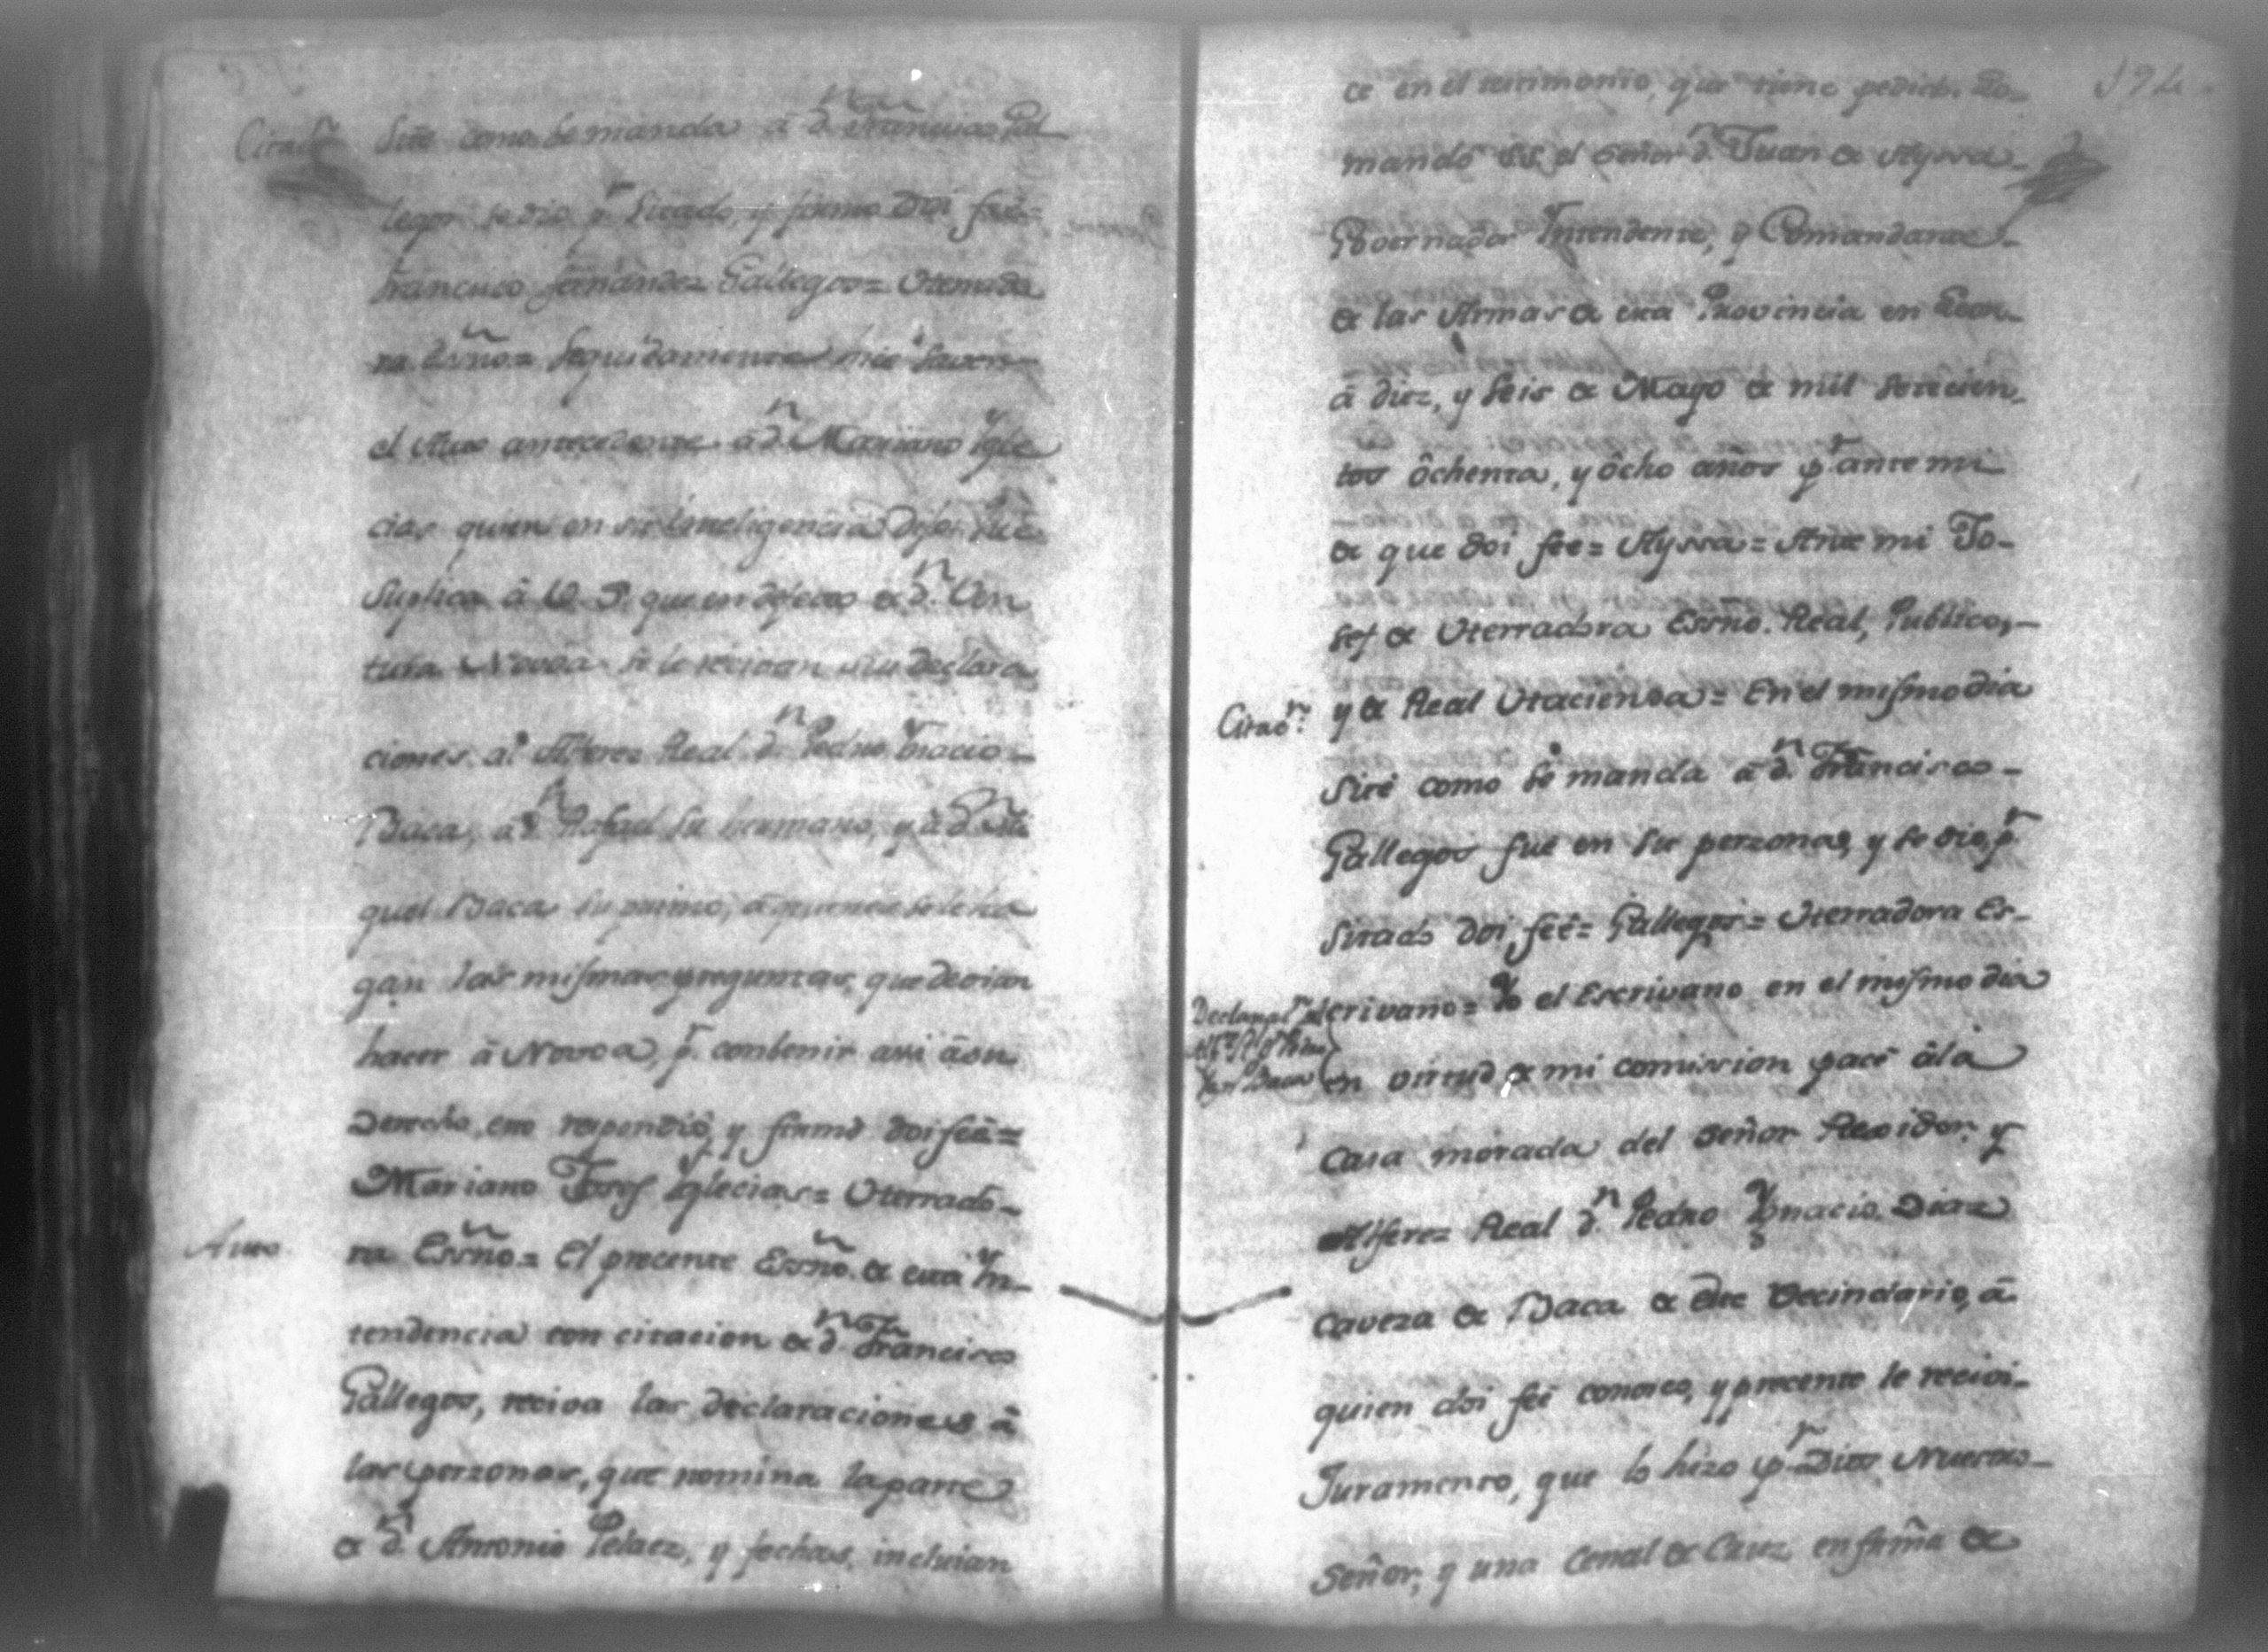 Citaón
Sité como se manda á d.n Francisco Gal
legos se dio pr. Sitado, y firmo Doi fee=
Francisco fernandez Gallegos= Uterrado
ra Essño= Seguidamente hice saver
el Auto antecedente á d.n Mariano Ygle
cias quien en su inteligencia dijo: que
Suplica á V. S. que en defecto de d.n Ven
tura Novoa se le recivan sus declara
ciones al Alferez Real d.n Pedro Ynacio
Baca, a d.n Rafael su hermano, y á d.n Mi
guel Baca su primo, á quienes se le ha
gan las mismas preguntas, que devian
hacer á Novoa, pr. combenir asi á su
Derecho, esto respondió, y firmó doi feé=
Mariano Josef Yglecias= Uterrado-
Auto
ra Essño= El precente Essño. de esta Yn-
tendencia con citacion de d.n Francisco
Gallegos, reciva las declaraciones á
las perzonas, que nomina la parte
de d.n Antonio Pelaez, y fechas, incluian
194
ce en el testimonio, que tiene pedido. Lo-
mandó SS. el Señor d.n Juan de Ayssa-
Governador Yntendente, y Comandante-
de las Armas de esta Provincia en Leon-
á diez, y seis de Mayo de mil setecien-
tos ôchenta, y ôcho años pr. ante mi
de que doi feé= Ayssa= Ante mi Jo-
sef de Uterradora Essño. Real, Publico,-
Citaón.
y de Real Utacienda= En el mismo dia
Sité como se manda á d.n Francisco-
Gallegos fue en su perzona, y se dio pr.
Sitado doi feé= Gallegos= Uterradora Es-
crivano= Yo el Escrivano en el mismo dia
en virtud de mi comission pacé âla
Casa morada del Señor Rexidor, y
Alferez Real d.n Pedro Ygnacio Diaz
Caveza de Baca de este Vecindario, á
quien doi feé conosco, y precente le recivi-
Juramento, que lo hizo pr. Dios Nuestro-
Señor, y una Cenal de Cruz en forma de